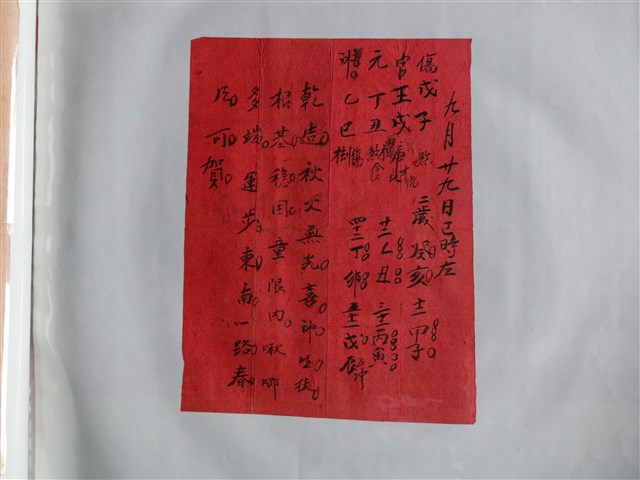 九月廿九日巳時左
傷戊子煞 二歲癸亥 十二甲子
官壬戌
元丁丑 食 廿二乙丑 三十二丙寅
乙巳傷 四十二丁卯 五十二戊辰
乾造秋火無光喜印生扶
根基穩固童限内啾唧
多端運步東南一路春
風可賀